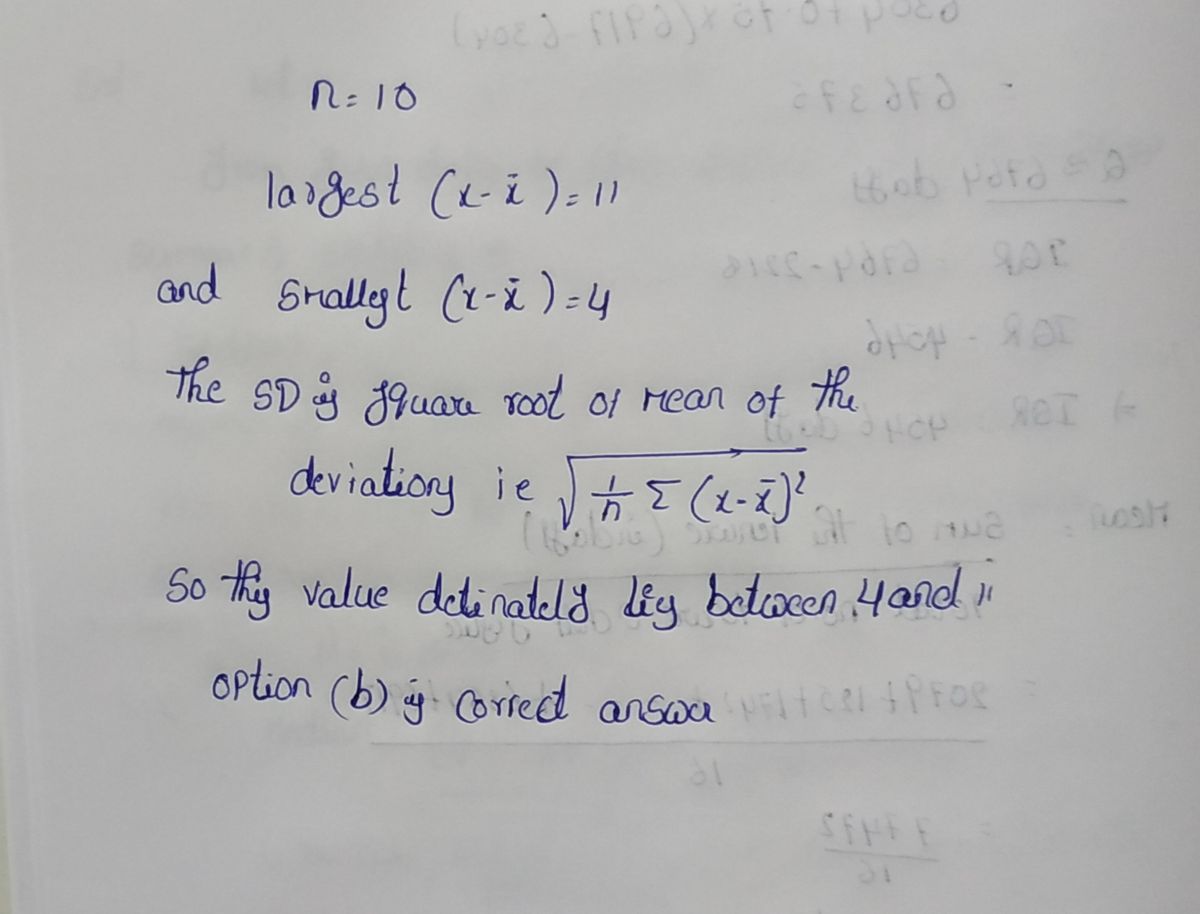 n = 10
largest (x - x̄) = 11
and smallest (x - x̄) = 4
The SD is square root of mean of the
deviations ie √(1/n Σ (x - x̄)²)
So this value definately lies between 4 and 11
option (b) is correct answer